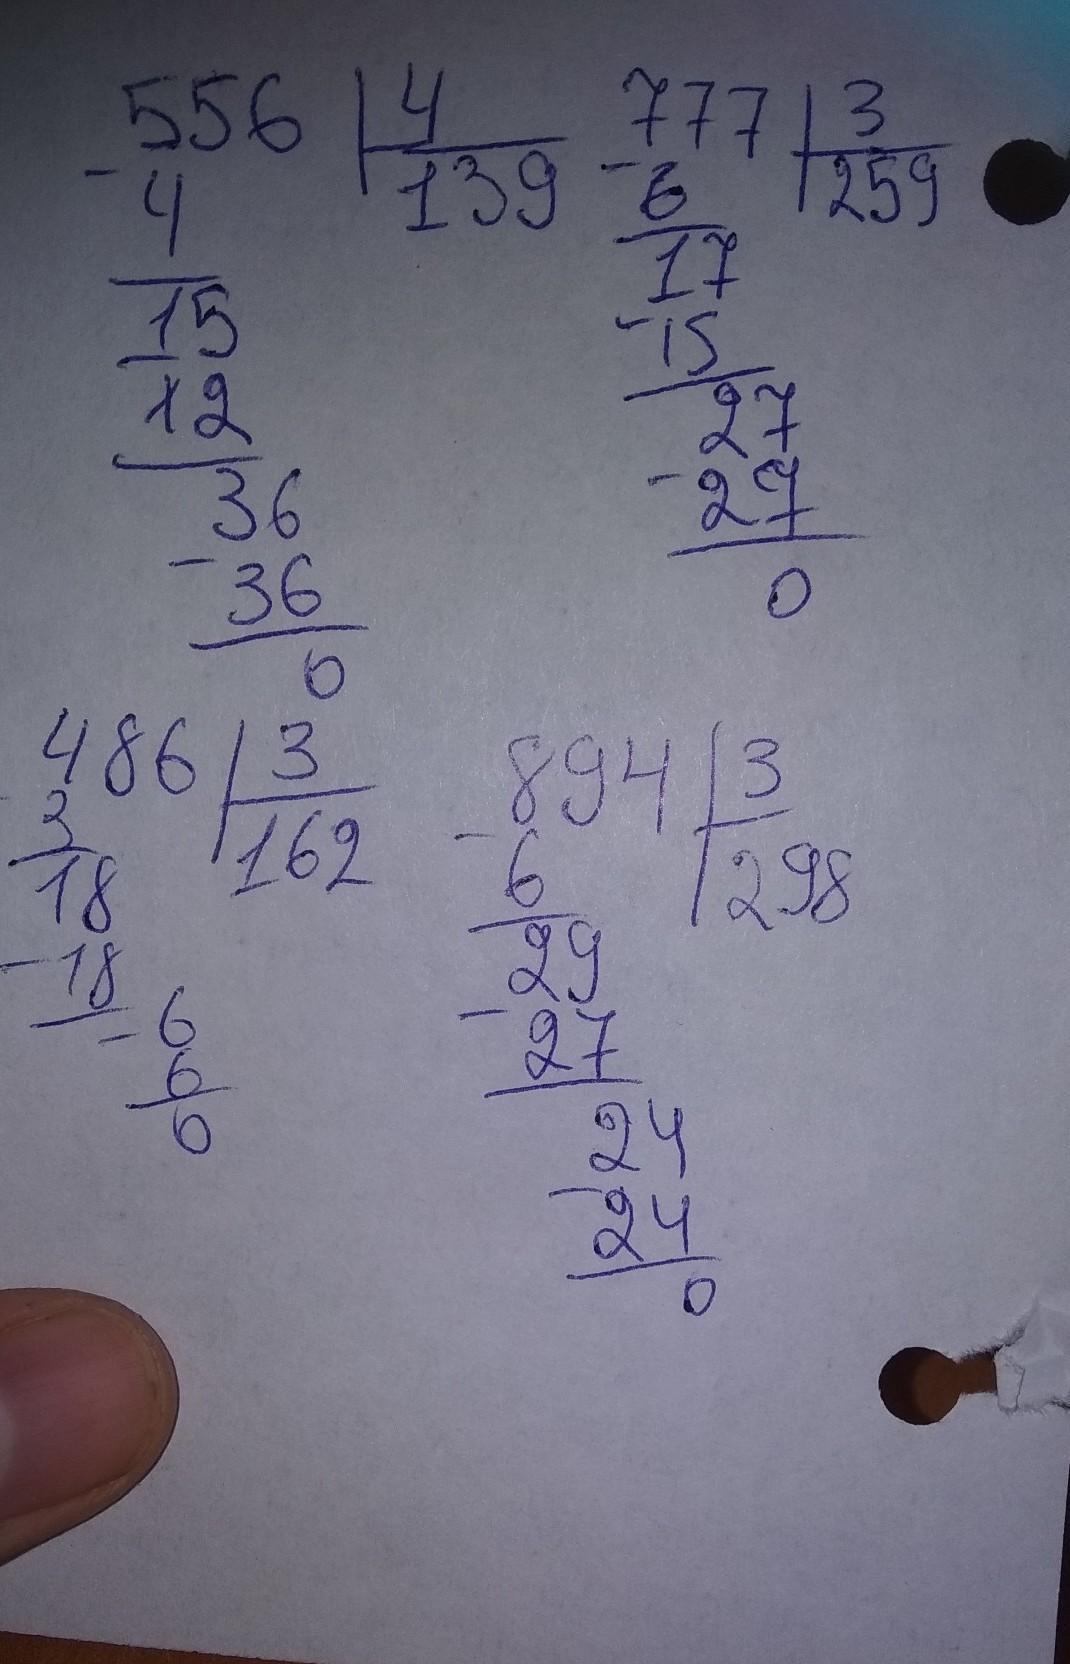 556 | 4
- 4 139
15
- 12
36
- 36
0
777 | 3
- 6 259
17
- 15
27
- 27
0
486 | 3
- 3 162
18
- 18
- 6
6
0
894 | 3
- 6 298
29
- 27
24
- 24
0